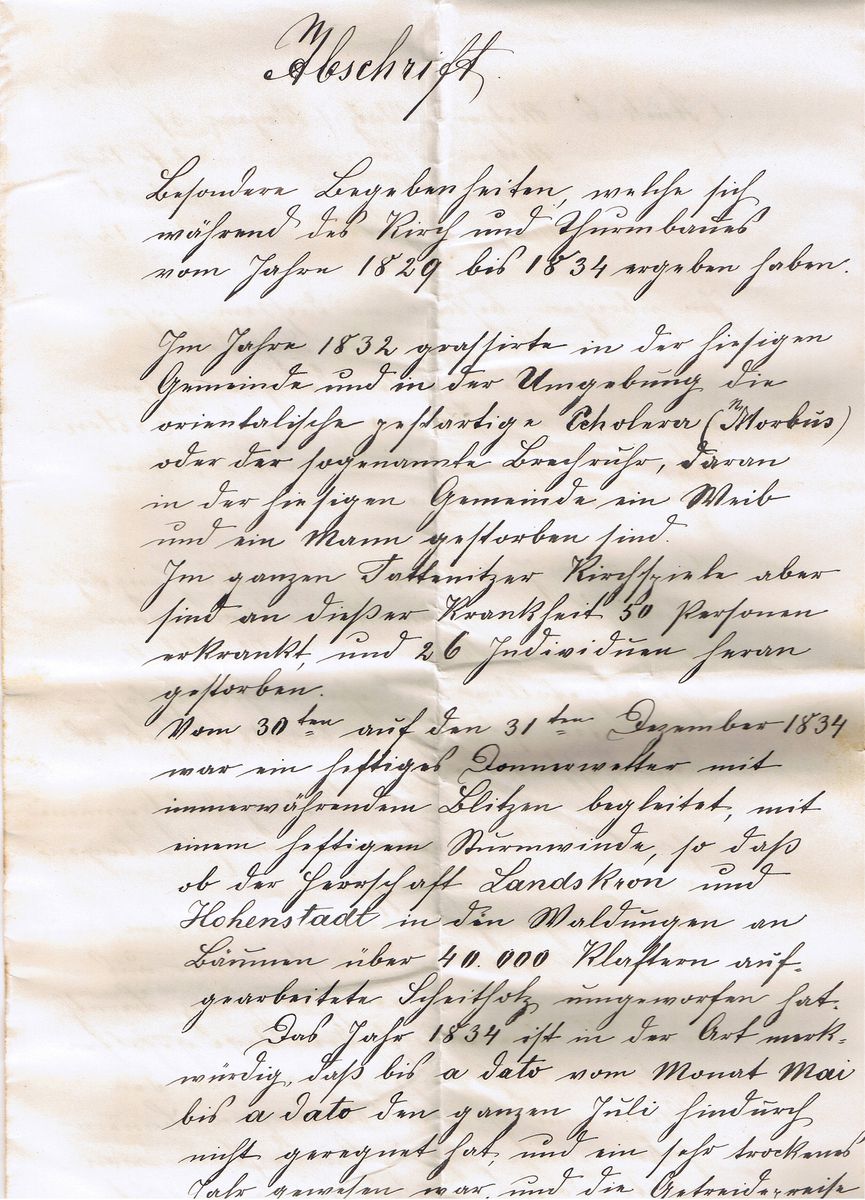 Abschrift.
Besondere Begebenheiten, welche sich
während des Kirch und Thurmbaues
vom Jahre 1829 bis 1834 ergeben haben.
Im Jahre 1832 grassirte in der hiesigen
Gemeinde und in der Umgebung die
orientalische pestartige Cholera (Morbus)
oder der sogenannte Brechruhr, daran
in der hiesigen Gemeinde ein Weib
und ein Mann gestorben sind.
Im ganzen Tattenitzer Kirchspiele aber
sind an dießer Krankheit 50 Personen
erkrankt, und 26 Individuen heran
gestorben.
Vom 30ten auf den 31ten Dezember 1834
war ein heftiges Donnerwetter mit
immerwährendem Blitzen begleitet, mit
einem heftigem Sturmwinde, so daß
ob der Herrschaft Landskron und
Hohenstadt in den Waldungen an
Bäumen über 40.000 Klaftern auf-
gearbeitete Scheitholz umgeworfen hat.
Das Jahr 1834 ist in der Art merk-
würdig, daß bis a dato vom Monat Mai
bis a dato den ganzen Juli hindurch
nicht geregnet hat, und ein sehr trockenes
Jahr gewesen war, und die Getreidepreise